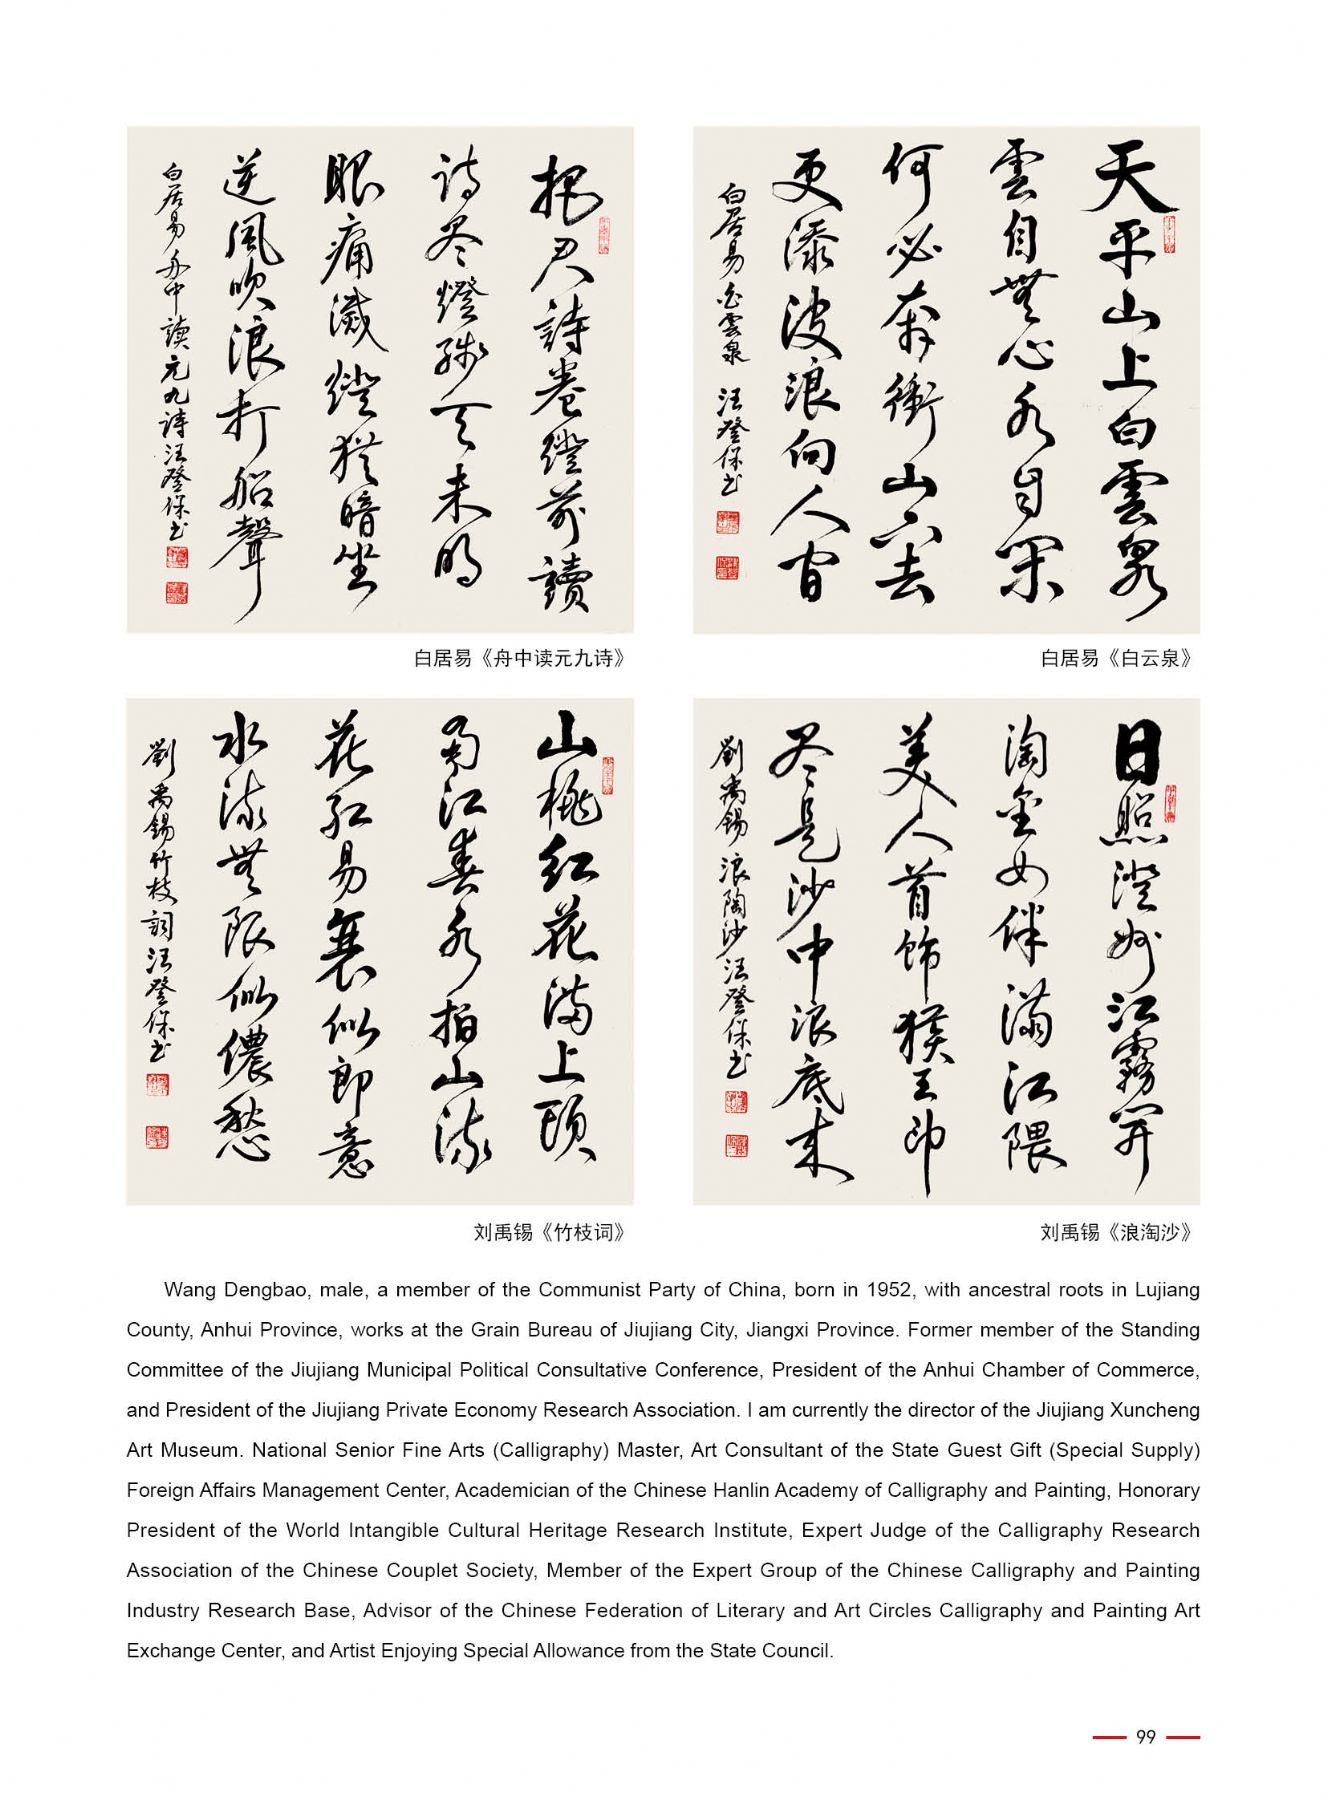 把君詩卷燈前讀
诗尽燈殘天未明
眼痛滅燈猶暗坐
逆風吹浪打船聲
白居易舟中讀元九诗汪登保书
白居易《舟中读元九诗》
天平山上白雲泉
雲自無心水自闲
何必奔衝山下去
更添波浪向人间
白居易白雲泉 汪登保书
白居易《白云泉》
山桃红花满上頭
蜀江春水拍山流
花红易衰似郎意
水流無限似儂愁
劉禹锡竹枝詞汪登保书
刘禹锡《竹枝词》
日照澄州江霧开
淘金女伴满江隈
美人首饰猴王印
尽是沙中浪底来
劉禹锡浪陶沙汪登保书
刘禹锡《浪淘沙》
Wang Dengbao, male, a member of the Communist Party of China, born in 1952, with ancestral roots in Lujiang
County, Anhui Province, works at the Grain Bureau of Jiujiang City, Jiangxi Province. Former member of the Standing
Committee of the Jiujiang Municipal Political Consultative Conference, President of the Anhui Chamber of Commerce,
and President of the Jiujiang Private Economy Research Association. I am currently the director of the Jiujiang Xuncheng
Art Museum. National Senior Fine Arts (Calligraphy) Master, Art Consultant of the State Guest Gift (Special Supply)
Foreign Affairs Management Center, Academician of the Chinese Hanlin Academy of Calligraphy and Painting, Honorary
President of the World Intangible Cultural Heritage Research Institute, Expert Judge of the Calligraphy Research
Association of the Chinese Couplet Society, Member of the Expert Group of the Chinese Calligraphy and Painting
Industry Research Base, Advisor of the Chinese Federation of Literary and Art Circles Calligraphy and Painting Art
Exchange Center, and Artist Enjoying Special Allowance from the State Council.
99